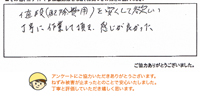 値段(駆除費用)を安くして欲しい
丁寧に作業して頂き、感じが良かった。
ご協力ありがとうございました。
アンケートにご協力いただきありがとうございます。
ねずみ被害が止まったとのことで安心いたしました。
丁寧と評価していただき嬉しく思います。